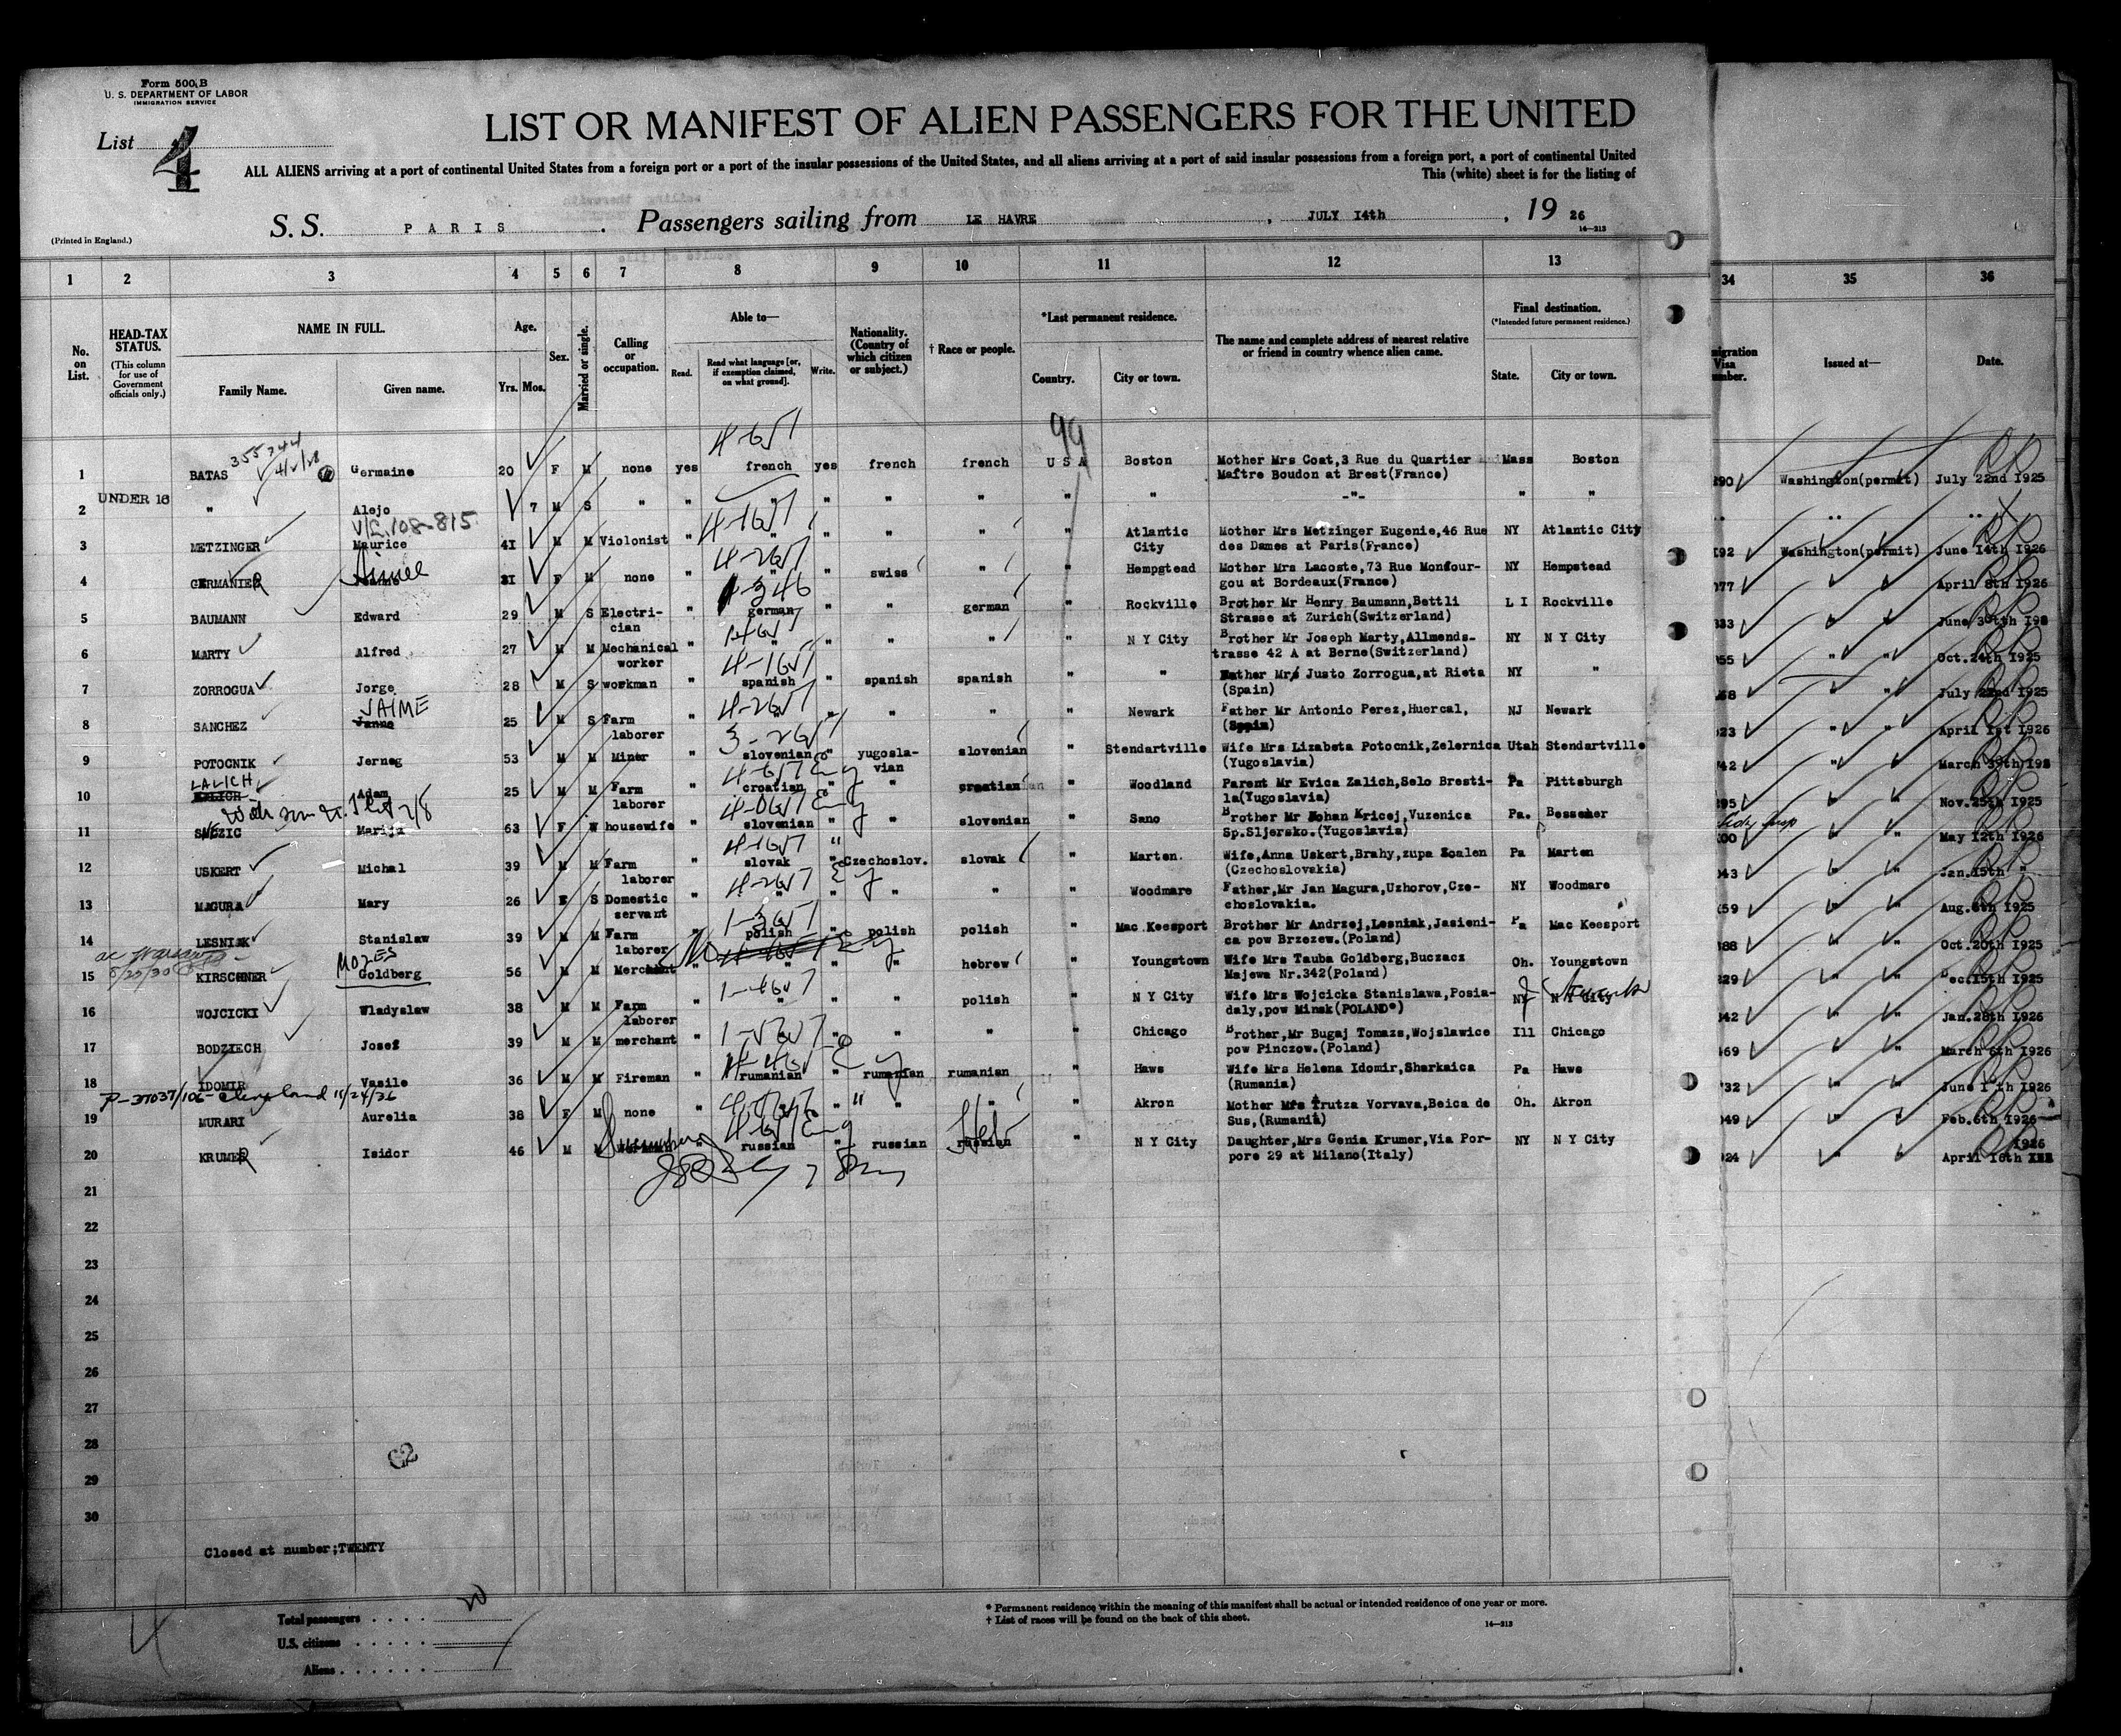 Form 500 B
U. S. DEPARTMENT OF LABOR
IMMIGRATION SERVICE
List 4
LIST OR MANIFEST OF ALIEN PASSENGERS FOR THE UNITED
ALL ALIENS arriving at a port of continental United States from a foreign port or a port of the insular possessions of the United States, and all aliens arriving at a port of said insular possessions from a foreign port, a port of continental United
This (white) sheet is for the listing of
S. S. PARIS. Passengers sailing from LE HAVRE, JULY I4th, 19 26
14—213
(Printed in England.)
1 2 3 4 5 6 7 8 9 10 11 12 13 34 35 36
No. on List.
HEAD-TAX STATUS.
(This column for use of Government officials only.)
NAME IN FULL.
Family Name. Given name.
Age.
Yrs. Mos.
Sex.
Married or single.
Calling or occupation.
Able to—
Read. Read what language [or, if exemption claimed, on what ground]. Write.
Nationality. (Country of which citizen or subject.)
† Race or people.
*Last permanent residence.
Country. City or town.
The name and complete address of nearest relative or friend in country whence alien came.
Final destination.
(*Intended future permanent residence.)
State. City or town.
Issued at— Date.
99
355744
1 BATAS Germaine 20 F M none yes french yes french french U S A Boston Mother Mrs Coat,3 Rue du Quartier Maître Boudon at Brest(France) Mass Boston 290 Washington(permit) July 22nd I925
UNDER 16
2 " Alejo 7 M S " " " " " " " " -"- " " " "
V/L.108-815
3 METZINGER Maurice 4I M M Violonist " " " " " " Atlantic City Mother Mrs Metzinger Eugenie,46 Rue des Dames at Paris(France) NY Atlantic City 192 Washington(permit) June I4th I926
4 GERMANIER Aimee 3I F M none " " " swiss " " Hempstead Mother Mrs Lacoste,73 Rue Monfour- gou at Bordeaux(France) NY Hempstead 077 " " April 8th I926
5 BAUMANN Edward 29 M S Electri- cian " german " " german " Rockville Brother Mr Henry Baumann,Bettli Strasse at Zurich(Switzerland) L I Rockville
6 MARTY Alfred 27 M M Mechanical worker " " " " " " N Y City Brother Mr Joseph Marty,Allmends- trasse 42 A at Berne(Switzerland) NY N Y City " " Oct.24th I925
7 ZORROGUA Jorge 28 M S workman " spanish " spanish spanish " " Justo Zorrogua,at Rieta (Spain) NY " " " July 22nd I925
JAIME
8 SANCHEZ 25 M S Farm laborer " " " " " " Newark Father Mr Antonio Perez,Huercal, (Spain) NJ Newark " " April Ist I926
9 POTOCNIK Jerneg 53 M M Miner " slovenian " yugosla- vian slovenian " Stendartville Wife Mrs Lizabeta Potocnik,Zelernica (Yugoslavia) Utah Stendartville
LALICH
10 Adam 25 M M Farm laborer " croatian " " croatian " Woodland Parent Mr Evica Zalich,Selo Bresti- la(Yugoslavia) Pa Pittsburgh Nov.25th I925
11 Marija 63 F W housewife " slovenian " " slovenian " Sano Brother Mr Johan Kricej,Vuzenica Sp.Sljersko.(Yugoslavia) Pa. Bessemer " " May I2th I926
12 USKERT Michal 39 M M Farm laborer " slovak " Czechoslov. slovak " Marten. Wife,Anna Uskert,Brahy,zupa Zoalen (Czechoslovakia) Pa Marten " " Jan.I5th "
13 MAGURA Mary 26 F S Domestic servant " " " " " " Woodmare Father,Mr Jan Magura,Uzhorov,Cze- choslovakia. NY Woodmare " " Aug.6th I925
14 LESNIAK Stanislaw 39 M M Farm laborer " polish " polish polish " Mac Keesport Brother Mr Andrzej,Lesniak,Jasieni- ca pow Brzezew.(Poland) Pa Mac Keesport " " Oct.20th I925
MOZES
15 KIRSCHNER Goldberg 56 M M Merchant " " " " hebrew " Youngstown Wife Mrs Tauba Goldberg,Buczacz Majewa Nr.342(Poland) Oh. Youngstown " " Dec.I5th I925
16 WOJCICKI Wladyslaw 38 M M Farm laborer " " " " polish " N Y City Wife Mrs Wojcicka Stanislawa,Posia- daly,pow Minsk(POLAND*) NY N Y City " " Jan.28th I926
17 BODZIECH Josef 39 M M merchant " " " " " " Chicago Brother,Mr Bugaj Tomazs,Wojslawice pow Pinczow.(Poland) Ill Chicago 469 " " March 6th I926
18 IDOMIR Vasile 36 M M Fireman " rumanian " rumanian rumanian " Haws Wife Mrs Helena Idomir,Sharkaica (Rumania) Pa Haws
P-37037/106- Cleveland 11/24/26
19 MURARI Aurelia 38 F M none " " " " " " Akron Mother Mrs Trutza Vorvava,Beica de Sus,(Rumania) Oh. Akron " " Feb.6th I926
20 KRUMER Isidor 46 M M " russian " russian russian Heb " N Y City Daughter,Mrs Genia Krumer,Via Por- pore 29 at Milano(Italy) NY N Y City " " April I6th I926
21
22
23
24
25
26
27
28
29
30
Closed at number;TWENTY
Total passengers . . . . 20
U.S. citizens . . . . .
Aliens . . . . . .
* Permanent residence within the meaning of this manifest shall be actual or intended residence of one year or more.
† List of races will be found on the back of this sheet.
14—213